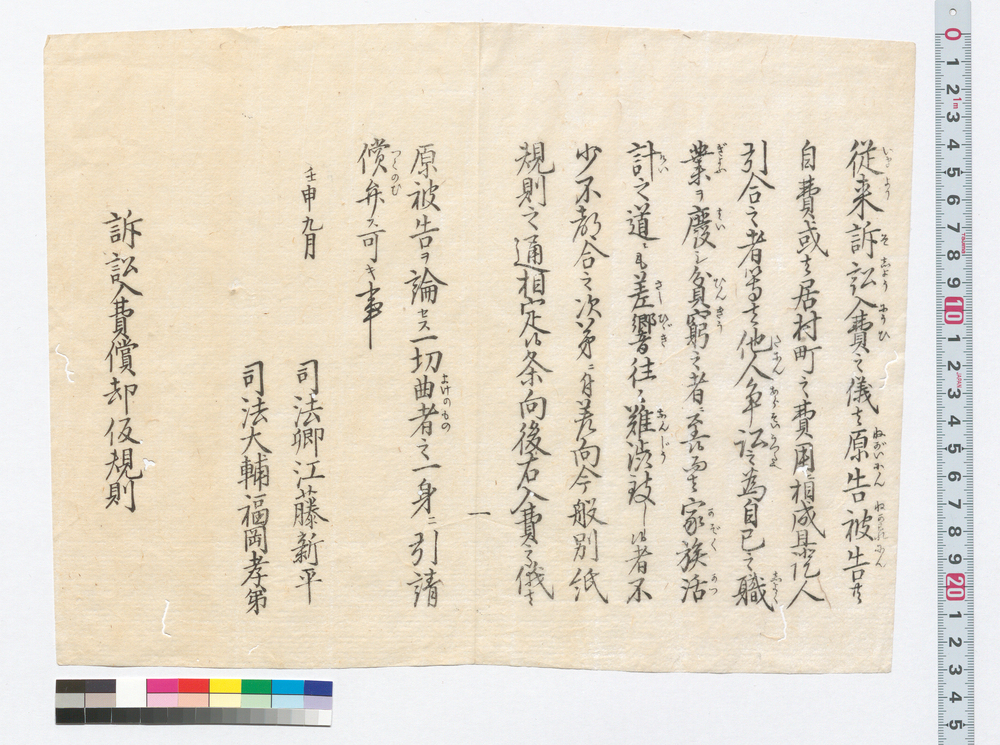 従来訴訟入費之儀者原告被告共
自費或者居村町之費用相成且証人
引合之者等者他人争訟之為自己之職
業ヲ廢シ貧窮之者ニ至而者家族活
計之道ニも差響往々難渋致し候者不
少不都合之次第ニ付差向今般別紙
規則之通相定候条向後右入費之儀者
原被告ヲ論セス一切曲者之一身ニ引請
償弁ス可キ事
壬申九月
司法卿江藤新平
司法大輔福岡孝弟
訴訟入費償却仮規則
一
0 1 2 3 4 5 6 7 8 9 10 1 2 3 4 5 6 7 8 9 20 1 2 3 4 5
1m